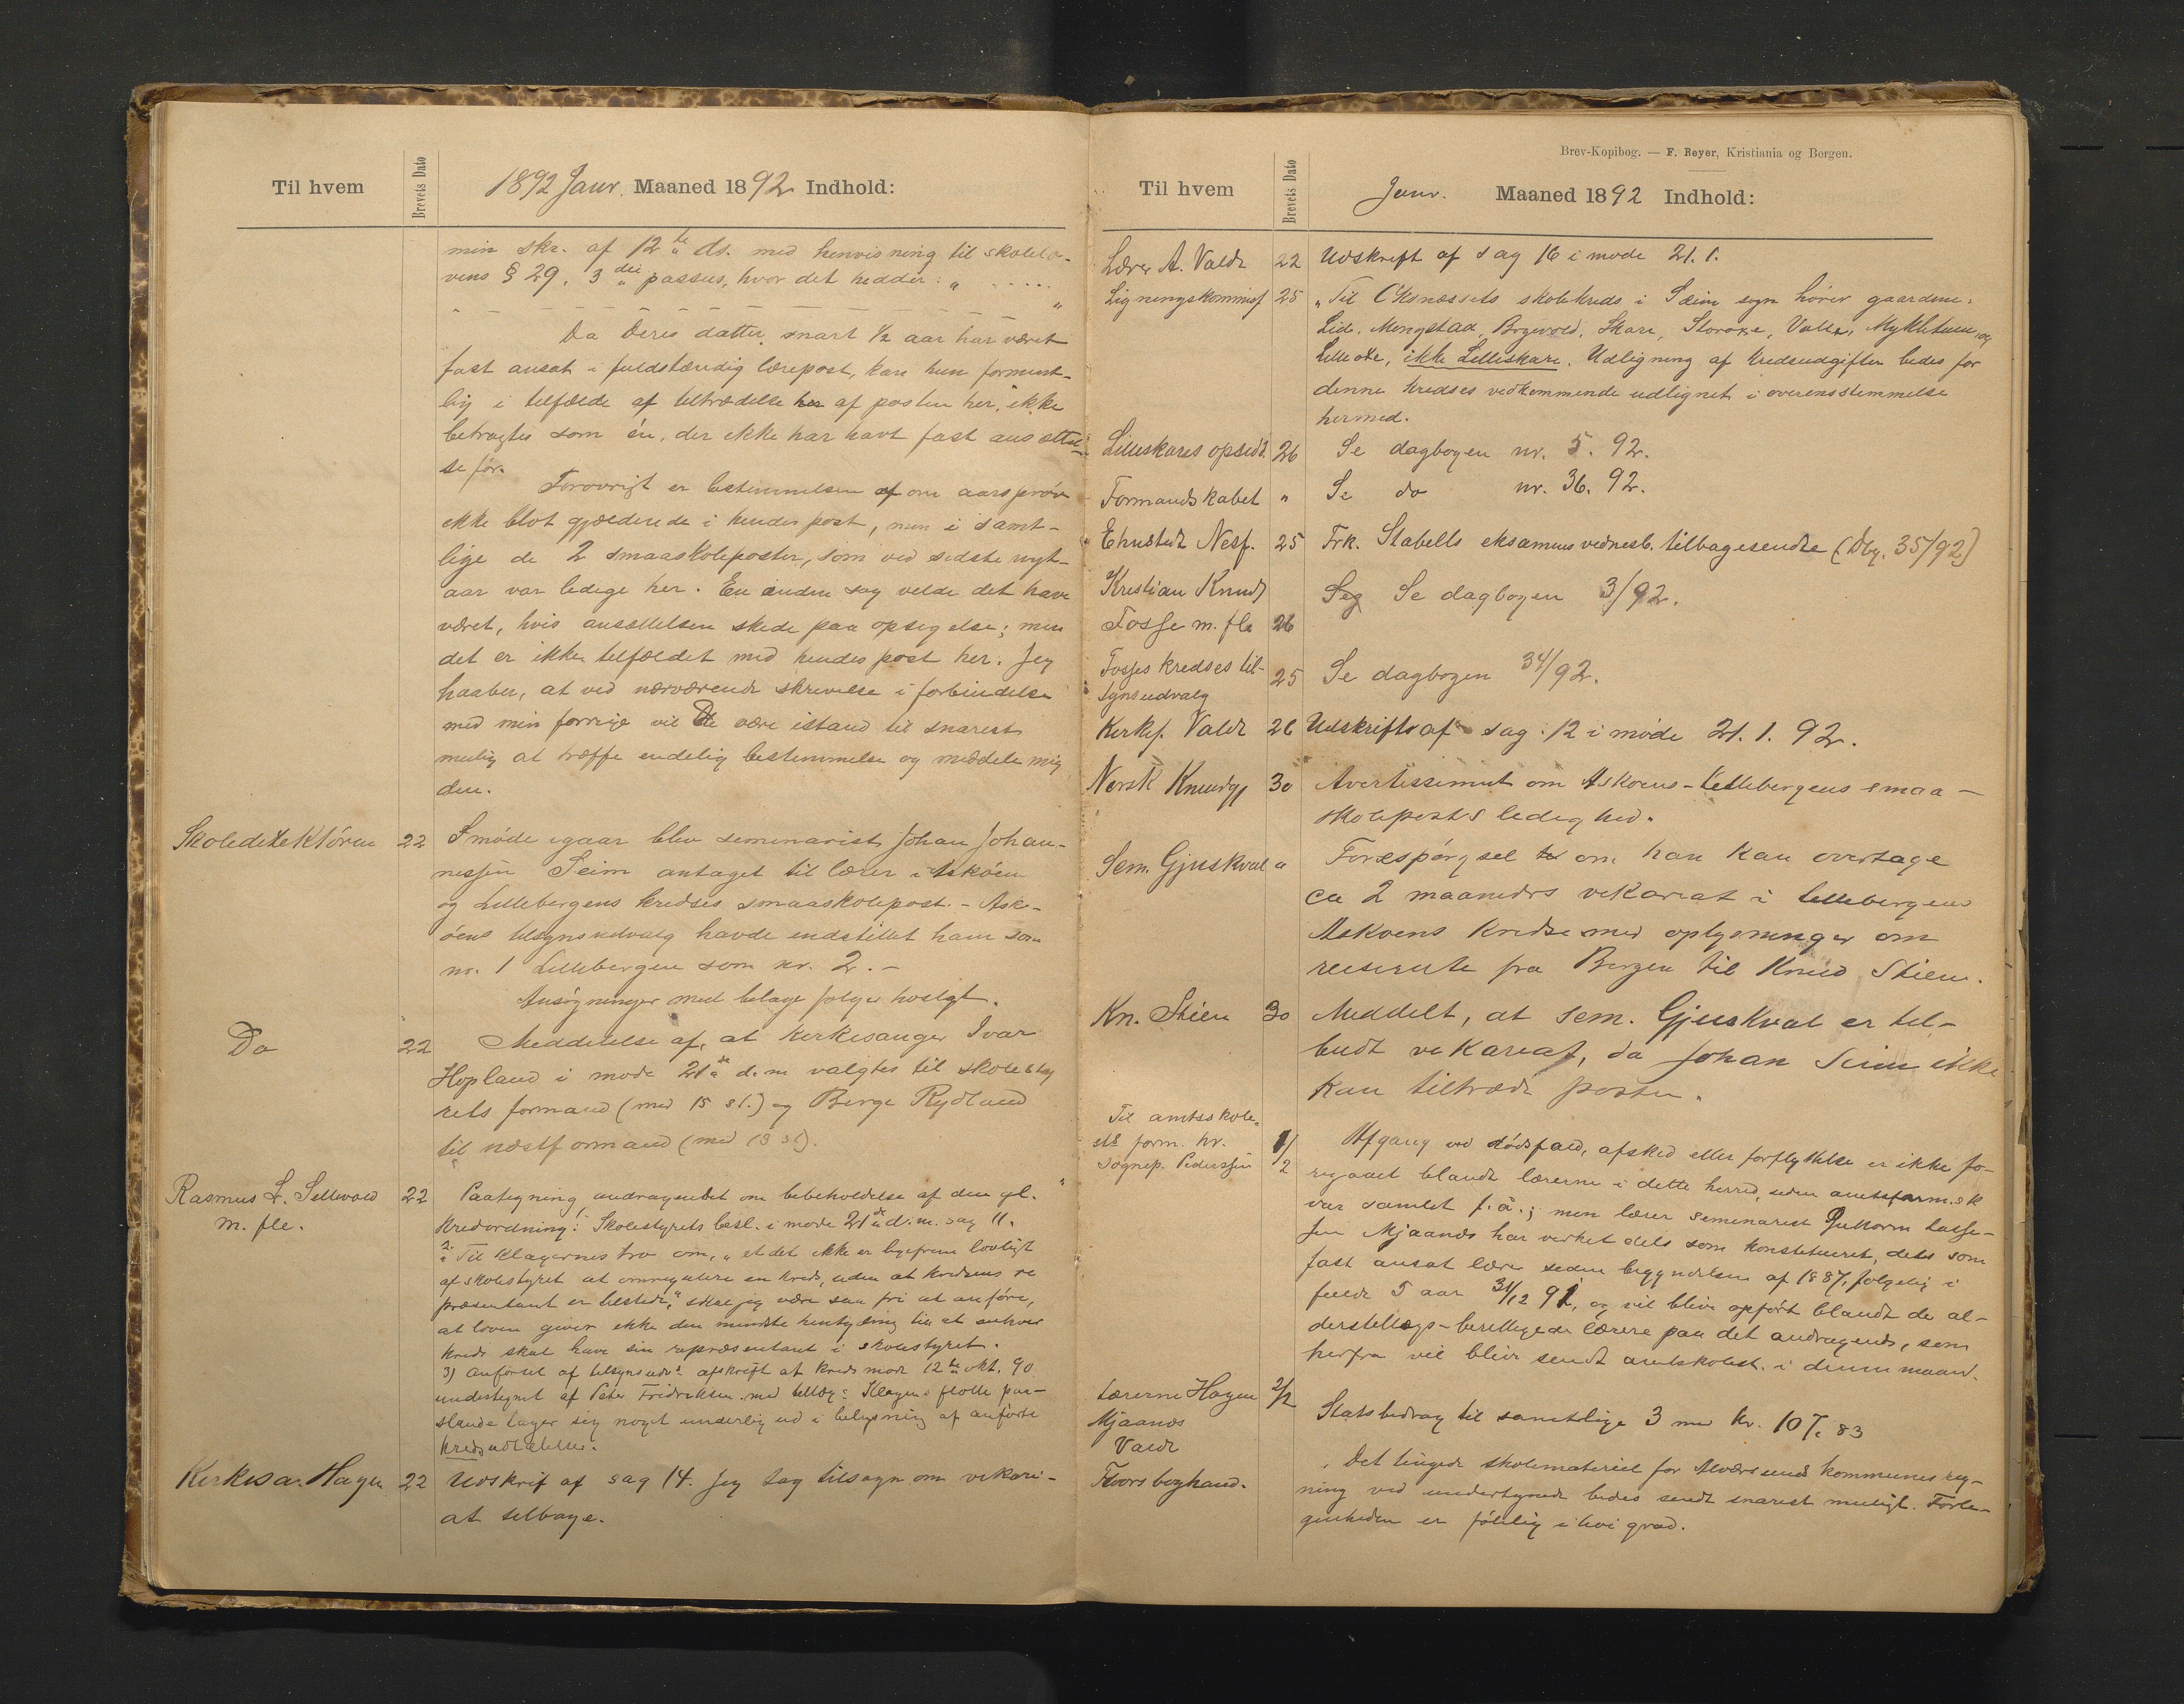 Til hvem
Brevets Dato
1892 Janr. Maaned 1892 Indhold:
min skr. af 12te ds. med henvisning til skolelo-
vens § 29, 3die passus, hvor det hedder: „ .....
"
Da Deres datter snart ½ aar har været
fast ansat i fuldstændig lærepost, kan hun forment-
lig i tilfælde af tiltrædelse af posten her, ikke
betragtes som én, der ikke har havt fast ansættel-
se før.
Forøvrigt er bestemmelsen om aarsprøve
ikke blot gjældende i hendes post, men i samt-
lige de 2 smaaskoleposter, som ved sidste nyt-
aar var ledige her. En anden sag vilde det have
været, hvis ansættelsen skede paa opsigelse; men
det er ikke tilfældet med hendes post her. Jeg
haaber, at ved nærværende skrivelse i forbindelse
med min forrige vil De være istand til snarest
mulig at træffe endelig bestemmelse og meddele mig
den.
Skoledirektøren 22 I møde igaar blev seminarist Johan Johan-
nessen Seim antaget til lærer i Askøen
og Lillebergens kredses smaaskolepost. - Ask-
øens tilsynsudvalg havde indstillet ham som
nr. 1 Lillebergen som nr. 2. -
Ansøgninger med bilage følger hoslgt.
Do 22 Meddelelse af, at kirkesanger Ivar
Hopland i møde 21de d.m. valgtes til skolesty
rets formand (med 15 st.) og Børge Rydland
til næstformand (med 13 st).
Rasmus L. Sellevold 22 Paategning andragendet om bibeholdelse af den gl.
m. fle. kredsordning: Skolestyrets besl. i møde 21de d.m. sag 11.
2. Til klagernes tro om, „at det ikke er ligefrem lovligt
af skolestyret at omregulere en kreds, uden at kredsens re
præsentant er tilstede," skal jeg være saa fri at anføre,
at loven giver ikke den mindste hentydning til at enhver
kreds skal have sin repræsentant i skolestyret.
3) anførsel af tilsynsudv. afskrift af kredsmøde 12te okt. 90
undertegnet af Peter Fridriksen med tillæg: Klagens flotte paa-
stande tager sig noget underlig ud i belysning af anførte
kredsudtalelse.
Kirkesa. Hagen 22 Udskrift af sag 14. Jeg tog tilsagn om vikari-
at tilbage.
Brev-Kopibog. — F. Beyer, Kristiania og Bergen.
Til hvem
Brevets Dato
Janr. Maaned 1892 Indhold:
Lærer A. Valde 22 Udskrift af sag 16 i møde 21.1.
Ligningskommiss 25 „Til Oksnæssets skolekreds i Sæim sogn hører gaardene:
Lid, Mongstad, Brgevold, Skare, Storoxe, Valle, Mykletun og
Lilleoxe, ikke Lilleskare. Udligning af kredsudgifter bedes for
denne kredses vedkommende udlignet i overensstemmelse
hermed.
Lilleskares opsidd. 26 Se dagbogen nr. 5. 92.
Formandskabet " Se do nr. 36. 92.
Enkefru Nesf. 25 Frk. Stabells eksamensvidnesb. tilbagesendte (Dbg. 35/92)
Kristian Knuds Se dagbogen 3/92.
Fosse m. fle 26
Fosses kredses til-
synsudvalg 25 Se dagbogen 34/92.
Kirkes. Valde 26 Udskrift af sag 12 i møde 21.1.92.
Norsk Kundgj 30 Avertissiment om Askøens-Lillebergens smaa-
skoleposts ledighed.
Sem. Gjuskval " Forespørgsel om han kan overtage
ca 2 maaneders vikariat i Lillebergens
Askøens kredse med oplysninger om
reiserute fra Bergen til Knud Skien.
Kn. Skien 30 Meddelt, at sem. Gjuskval er til-
budt vikariat, da Johan Seim ikke
kan tiltræde posten.
Til amtsskole-
sts form. hr.
sognep. Pedersen 1/2 Afgang ved dødsfald, afsked eller forflyttelse er ikke fo-
regaaet blandt lærerne i dette herred, siden amtsform.sk
var samlet f. å.; men lærer seminarist Guttorm Lasse-
sen Mjaanes har virket dels som konstitueret, dels som
fast ansat lærer siden begyndelsen af 1887, følgelig i
fulde 5 aar 31/12 91, og vil blive opført blandt de al-
derstillægs-berettigede lærere paa det andragende, som
herfra vil blive sendt amtskolest. i denne maaned.
Lærerne Hagen 2/2 Statsbidrag til samtlige 3 med kr. 107,83
Mjaanes
Valde
Floors boghand. Det tingede skolemateriel for Alversunds kommunes reg-
ning ved undertegnede bedes sendt snarest muligt. Forle-
genheden er følelig i høi grad.